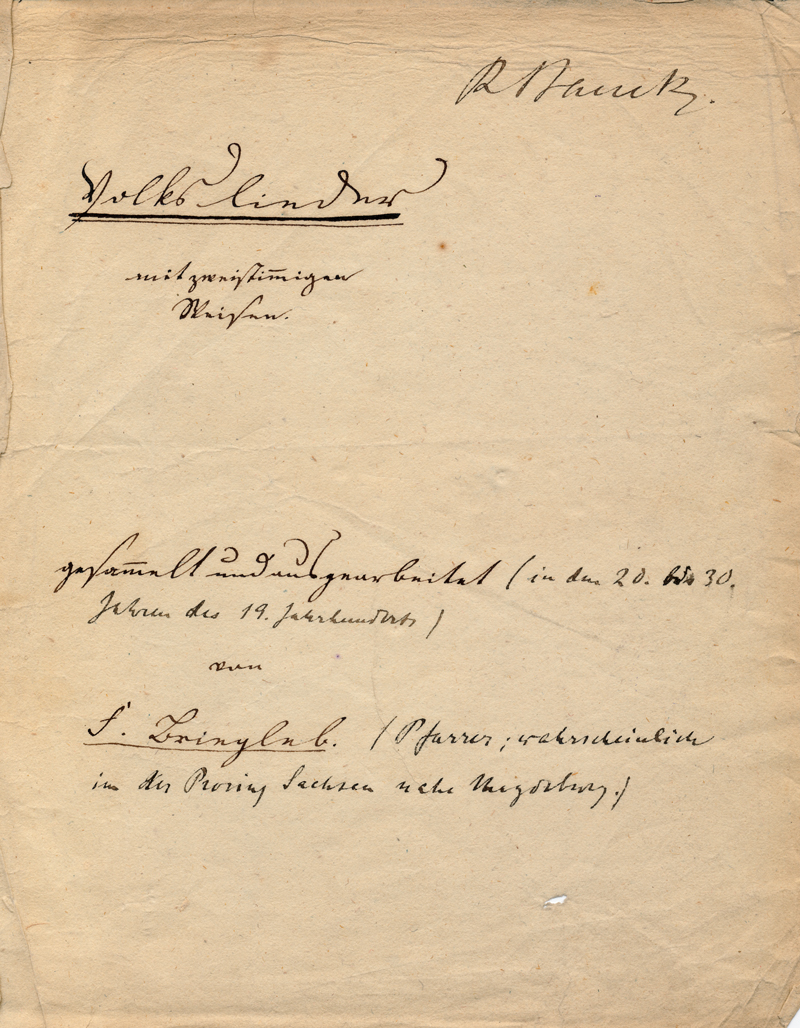 Volkslieder
mit zweistim̅igen
Weisen.
gesam̅elt und ausgearbeitet (in den 20. bis 30.
Jahren des 19. Jahrhunderts)
von
F. Briegleb. (Pfarrer; wahrscheinlich
in der Provinz Sachsen nahe Magdeburg.)